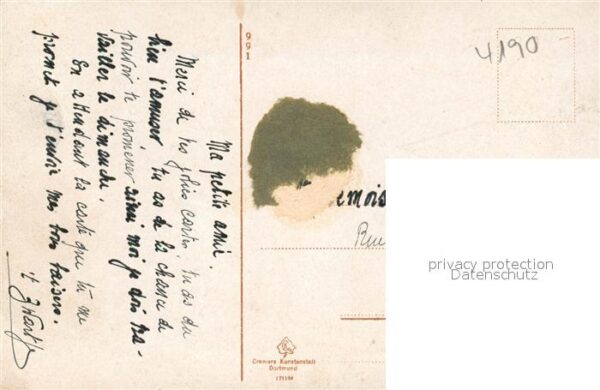 Ma petite amie.
Merci de tes jolies cartes, tu as du
bien t'amuser tu as de la chance de
pouvoir te promener ainsi moi je dois tra-
vailler le dimanche.
En attendant ta carte que tu me
promet je t'envoie mes bons baisers.
991
4190
emois
Rue
privacy protection
Datenschutz
Cramers Kunstanstalt
Dortmund